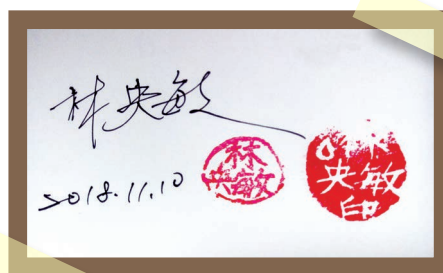 林央敏
2018.11.10
林
央敏
林
央敏
印